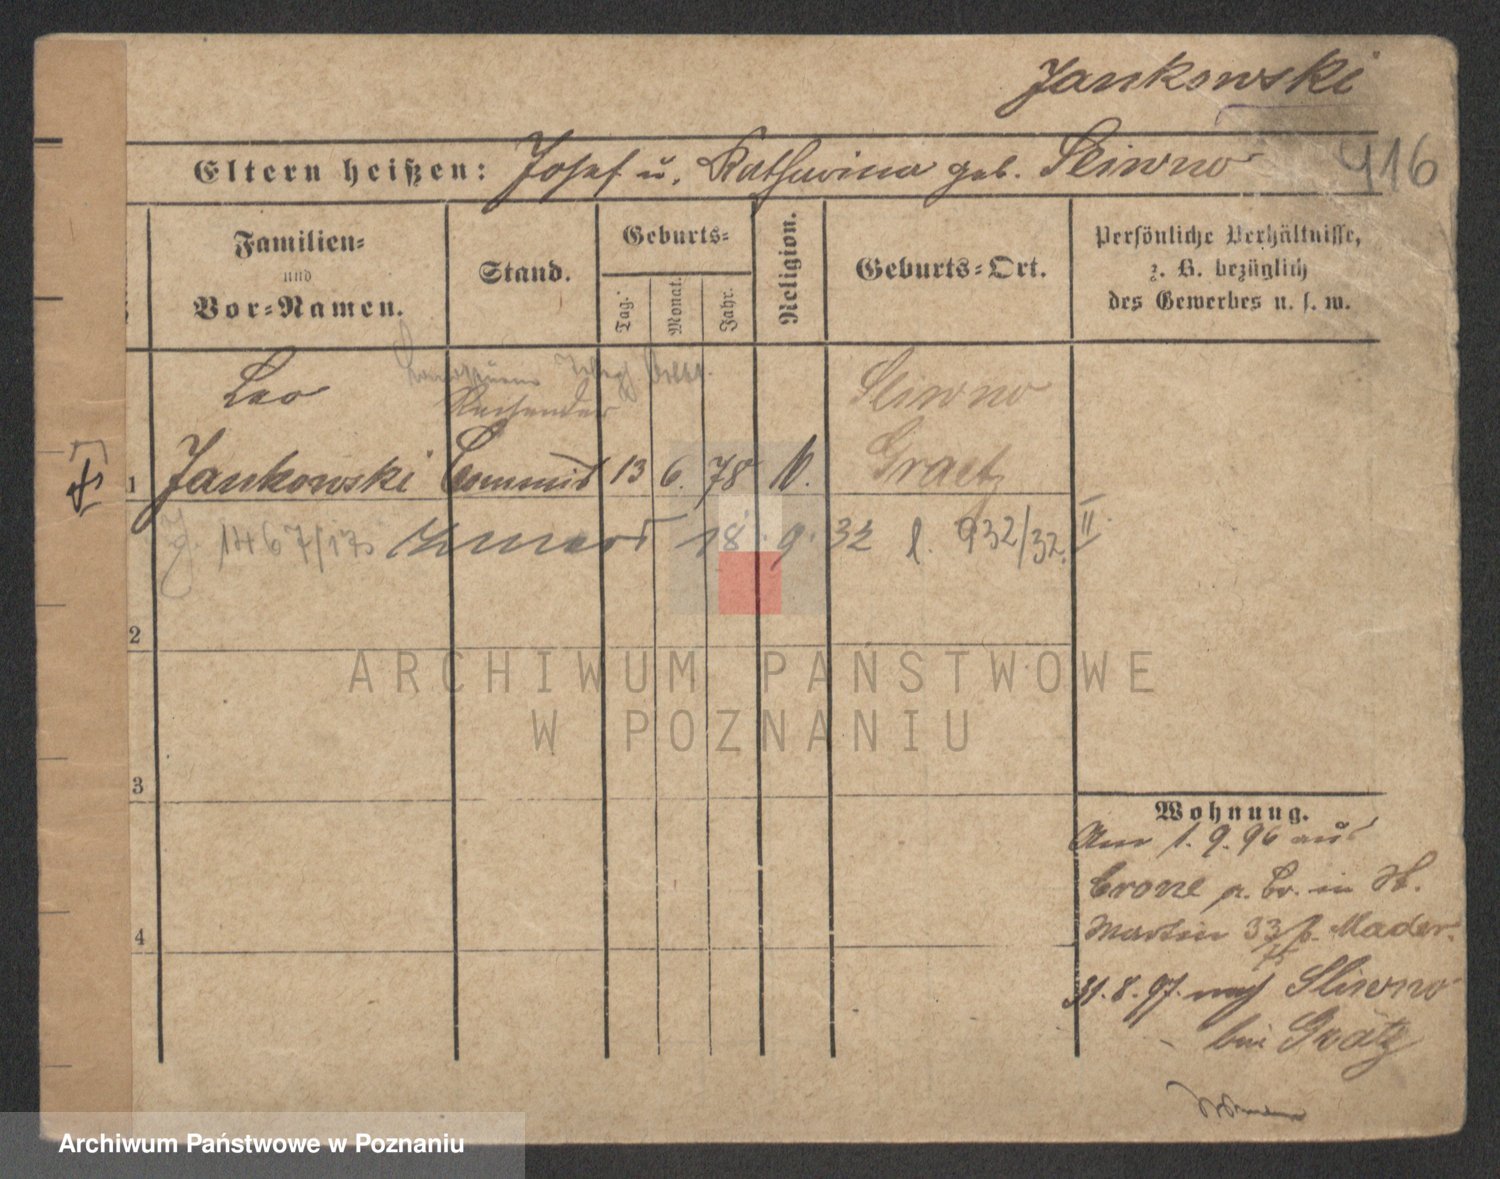 Jankowski
916
Eltern heißen: Josef u. Katharina geb. Sliwno
Familien-
und
Vor-Namen.
Stand.
Geburts-
Tag.
Monat.
Jahr.
Religion.
Geburts-Ort.
Persönliche Verhältnisse,
z. B. bezüglich
des Gewerbes u. s. w.
Leo
Sliwno
1 Jankowski Commis 13 6. 78 Graetz
J. 1467/13 18. 9. 32 l. 932/32. II
2
3
4
Wohnung.
Am 1. 9. 96 aus
Crone a. Br. in St.
Martin 33 b. Mader.
31. 8. 97. nach Sliwno
bei Grätz
ARCHIWUM PAŃSTWOWE
W POZNANIU
Archiwum Państwowe w Poznaniu